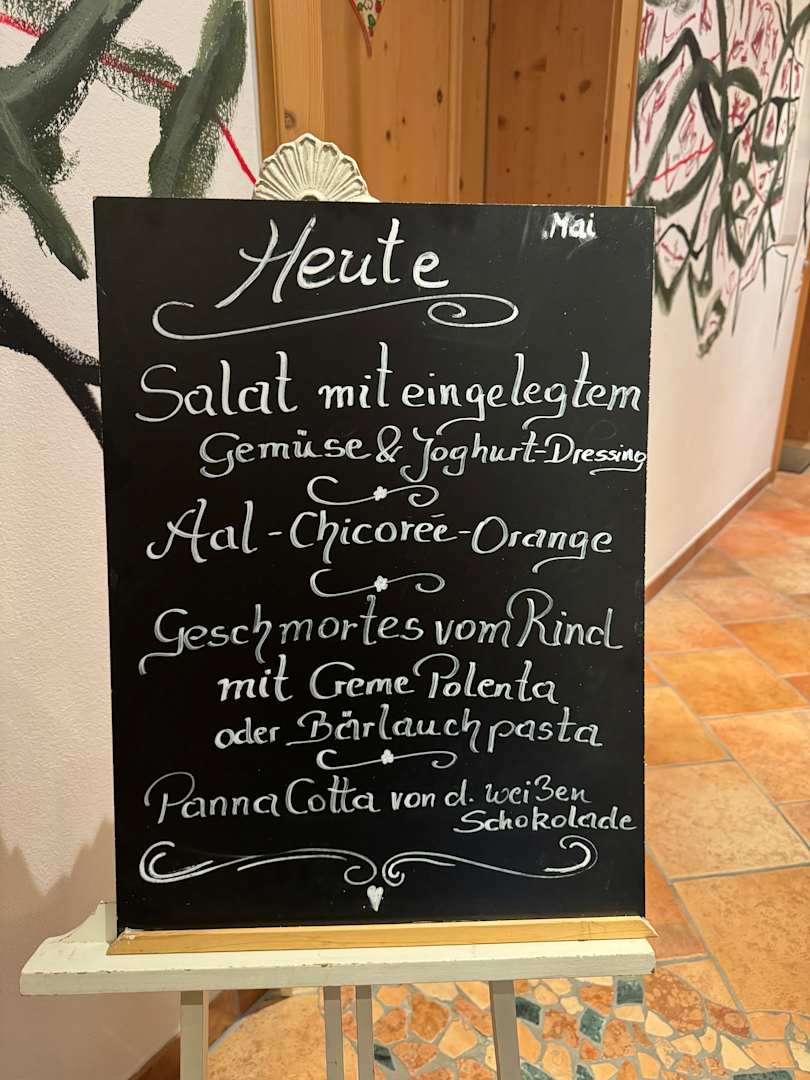 .Mai
Heute
Salat mit eingelegtem
Gemüse & Joghurt-Dressing
Aal-Chicorée-Orange
Geschmortes vom Rind
mit Creme Polenta
oder Bärlauchpasta
Panna Cotta von d. weißen
Schokolade